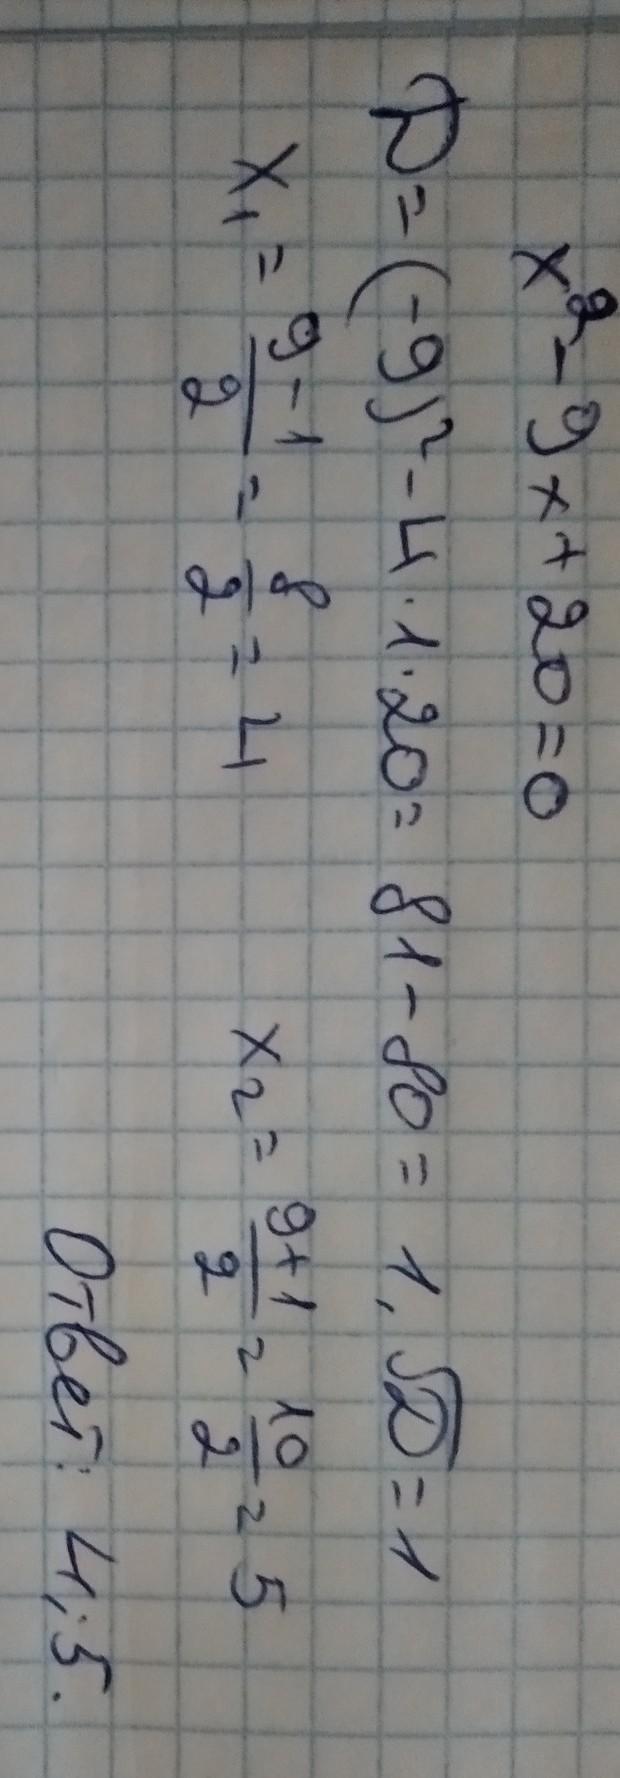 x² - 9x + 20 = 0
D = (-9)² - 4 · 1 · 20 = 81 - 80 = 1, √D = 1
x₁ = (9 - 1)/2 = 8/2 = 4 x₂ = (9 + 1)/2 = 10/2 = 5
Ответ: 4; 5.